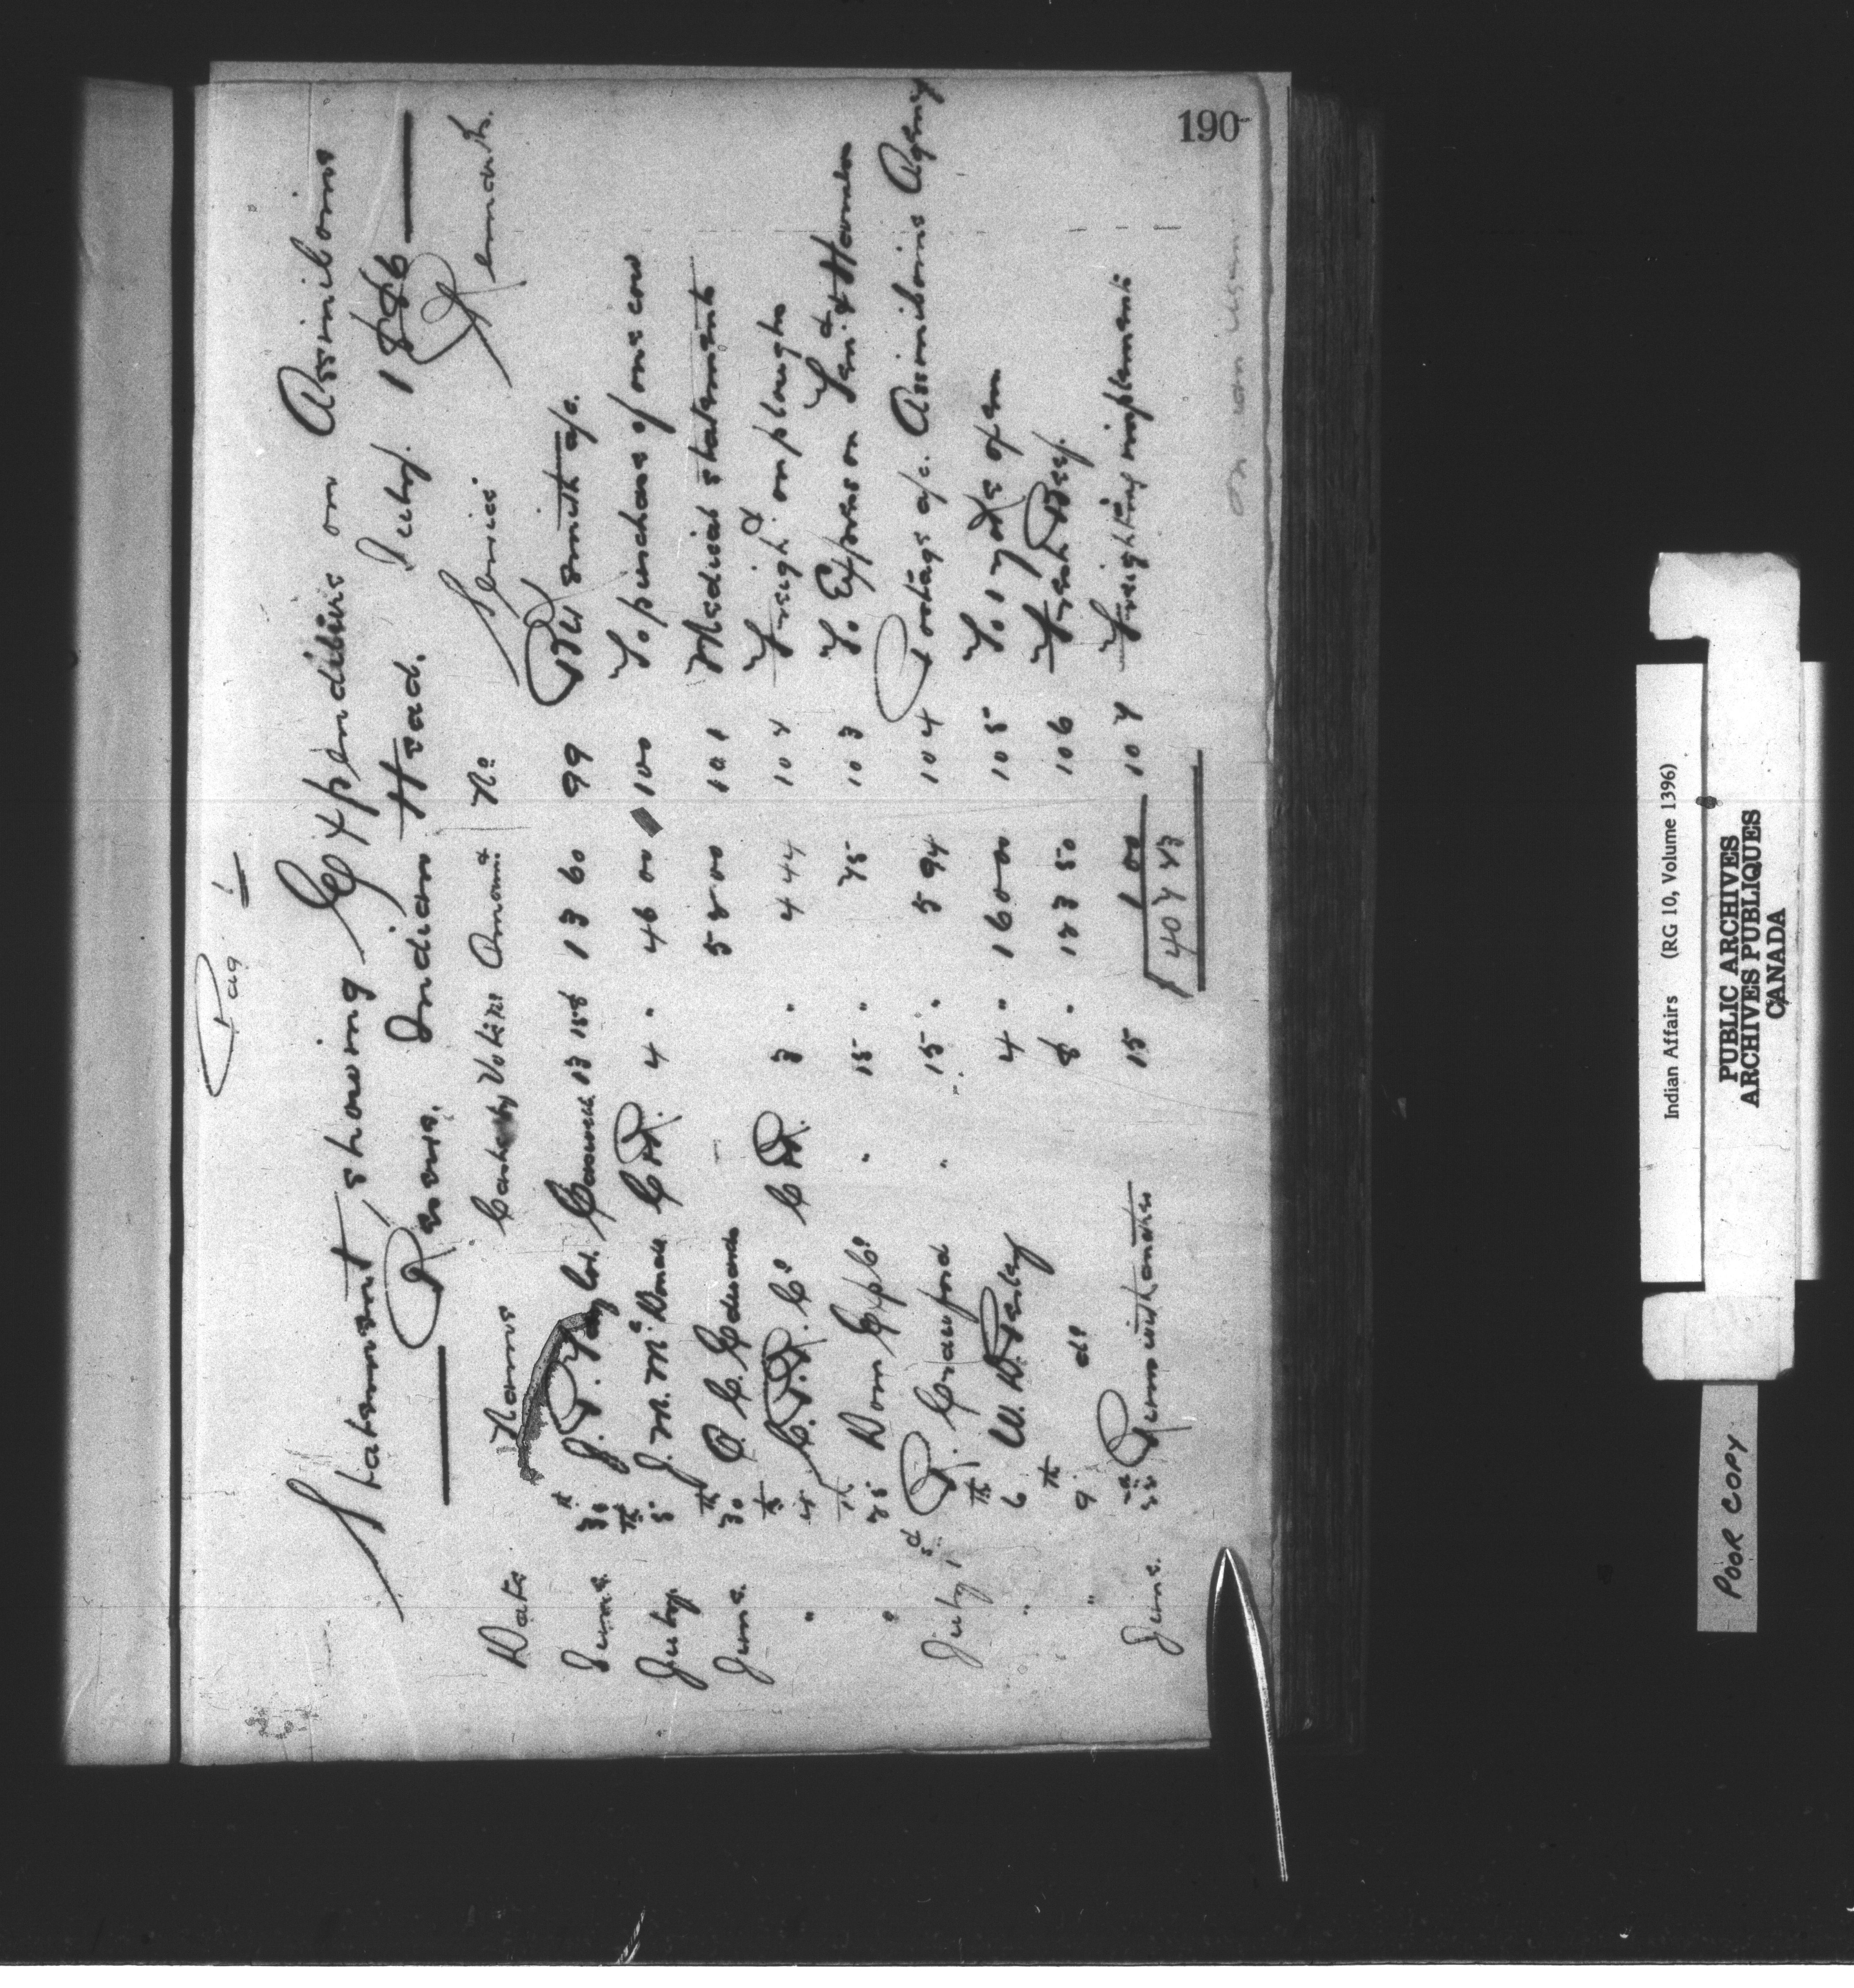 190
Pag 1
Statement showing Expenditure on Assiniboine
Reserve. Indian Head. July. 1886
Date Name Cash by Vote No Amount No Service Remarks.
June 30th J. P. Taylor. 13 188 13 60 99 Bk smith a/c.
July. 5th J. M. McDonald C.R. 4 " 46 00 100 To purchase of one cow
June. 30th O. C. Edwards 52 00 101 Medical statements
" 4th C.P.R. Co C.R. 3 " 4 44 102 Freight on ploughs
" 25th Dom Exp Co " 15 " 75 103 To Express on
July 1st P. Crawford " 15 " 5 94 104 Postage a/c. Assiniboine Agency
" 6th W. R. Perley 4 " 160 00 105 To 1 yoke oxen
" 9th do 8 " 123 50 106 Fresh Beef.
June. 15 1 00 107 Freighting implements
$407 23
Indian Affairs (RG 10, Volume 1396)
PUBLIC ARCHIVES
ARCHIVES PUBLIQUES
CANADA
POOR COPY